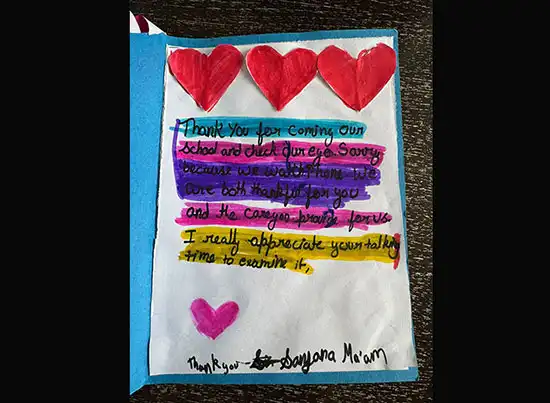 Thank You for coming our
school and check our eye. Sorry
because we watch Phone We
are both thankful for you
and the care you provide for us.
I really appreciate your talking
time to examine it,
Thank you Sanjana Ma'am